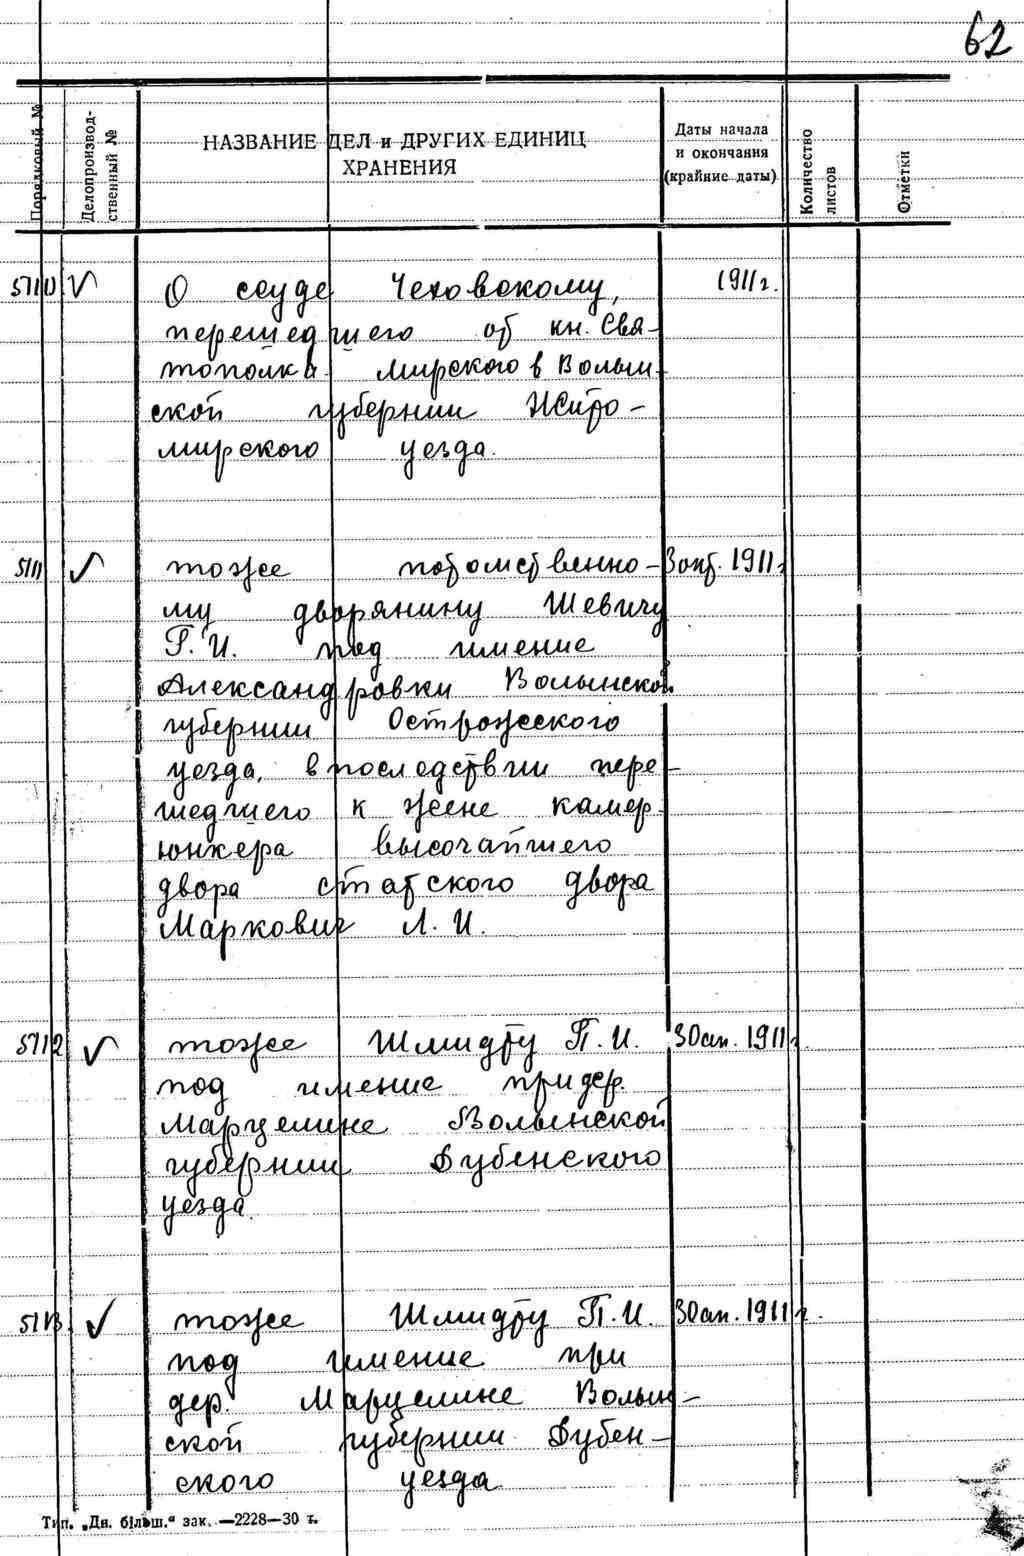 62
Порядковый №
Делопроизвод-
ственный №
НАЗВАНИЕ ДЕЛ и ДРУГИХ ЕДИНИЦ
ХРАНЕНИЯ
Даты начала
и окончания
(крайние даты)
Количество
листов
Отметки
5710 О ссуде Чеховскому, 1911 г.
перешедшего от кн. Свя-
тополка Мирского в Волын-
ской губернии Жито-
мирского уезда.
5711 тоже потомственно- 3 окт. 1911 г.
му дворянину Шевичу
Г. И. под имение
Александровки Волынской
губернии Острожского
уезда, впоследствии пере-
шедшего к жене камер-
юнкера высочайшего
двора статского двора
Маркович Л. И.
5712 тоже Шмидту П. И. 30 ап. 1911 г.
под имение при дер.
Марцелине Волынской
губернии Дубенского
уезда
5713 тоже Шмидту П. И. 30 ап. 1911 г.
под имение при
дер. Марцелине Волын-
ской губернии Дубен-
ского уезда
Тип. „Дн. більш.“ зак. —2228—30 т.